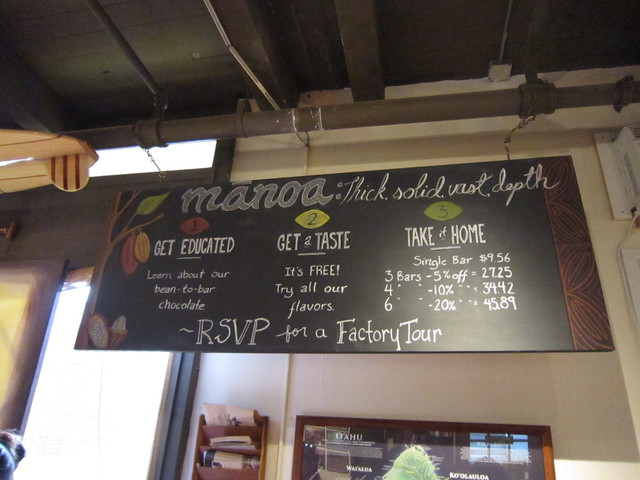 manoa: Thick, solid, vast, depth
1
GET EDUCATED
Learn about our
bean-to-bar
chocolate
2
GET a TASTE
It's FREE!
Try all our
flavors.
3
TAKE it HOME
Single Bar $9.56
3 Bars - 5% off = 27.25
4 " -10% " = 34.42
6 " -20% " = 45.89
~RSVP for a Factory Tour
O'AHU
WAI'ALUA
KO'OLAULOA